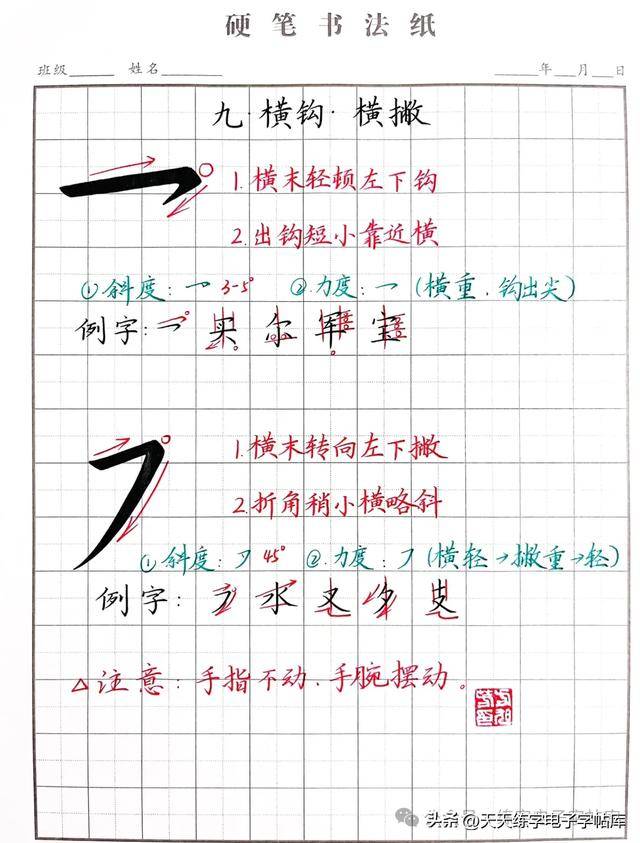 硬笔书法纸
班级 姓名 年 月 日
九·横钩·横撇
1.横末轻顿左下钩
2.出钩短小靠近横
①斜度:乛 3-5° ②力度:乛(横重.钩出尖)
例字:乛 买 尔 军 宝
1.横末转向左下撇
2.折角稍小横略斜
①斜度:㇇ 45° ②力度:㇇(横轻→撇重→轻)
例字:㇇ 水 又 夕 支
△注意:手指不动.手腕摆动。
头条@天天练字电子字帖库